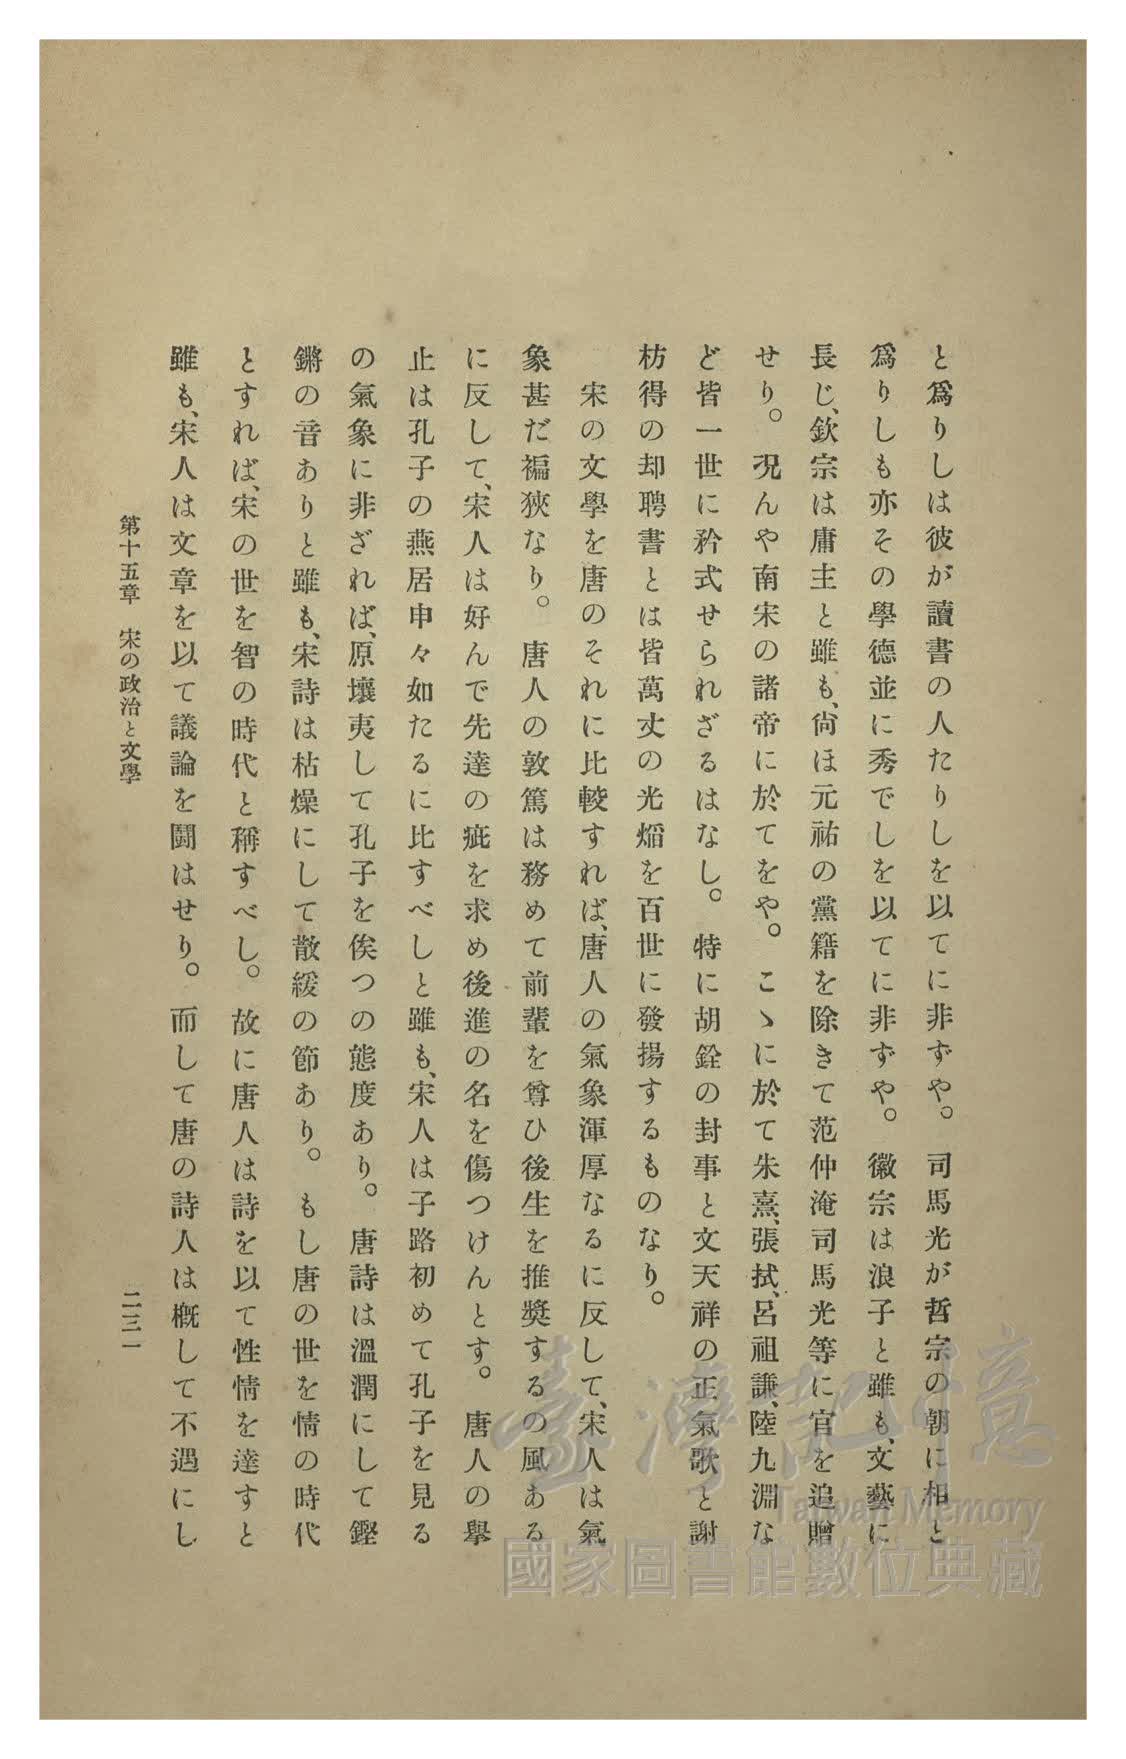 と爲りしは彼が讀書の人たりしを以てに非ずや。司馬光が哲宗の朝に相と
爲りしも亦その學德並に秀でしを以てに非ずや。徽宗は浪子と雖も、文藝に
長じ、欽宗は庸主と雖も、尙ほ元祐の黨籍を除きて范仲淹司馬光等に官を追贈
せり。況んや南宋の諸帝に於てをや。こゝに於て朱熹、張拭、呂祖謙、陸九淵な
ど皆一世に矜式せられざるはなし。特に胡銓の封事と文天祥の正氣歌と謝
枋得の却聘書とは皆萬丈の光熖を百世に發揚するものなり。
宋の文學を唐のそれに比較すれば、唐人の氣象渾厚なるに反して、宋人は氣
象甚だ褊狹なり。唐人の敦篤は務めて前輩を尊ひ後生を推奬するの風ある
に反して、宋人は好んで先達の疵を求め後進の名を傷つけんとす。唐人の擧
止は孔子の燕居申々如たるに比すべしと雖も、宋人は子路初めて孔子を見る
の氣象に非ざれば、原壤夷して孔子を俟つの態度あり。唐詩は溫潤にして鏗
鏘の音ありと雖も、宋詩は枯燥にして散緩の節あり。もし唐の世を情の時代
とすれば、宋の世を智の時代と稱すべし。故に唐人は詩を以て性情を達すと
雖も、宋人は文章を以て議論を鬪はせり。而して唐の詩人は槪して不遇にし
第十五章 宋の政治と文學
二三一
臺灣記憶
Taiwan Memory
國家圖書館數位典藏